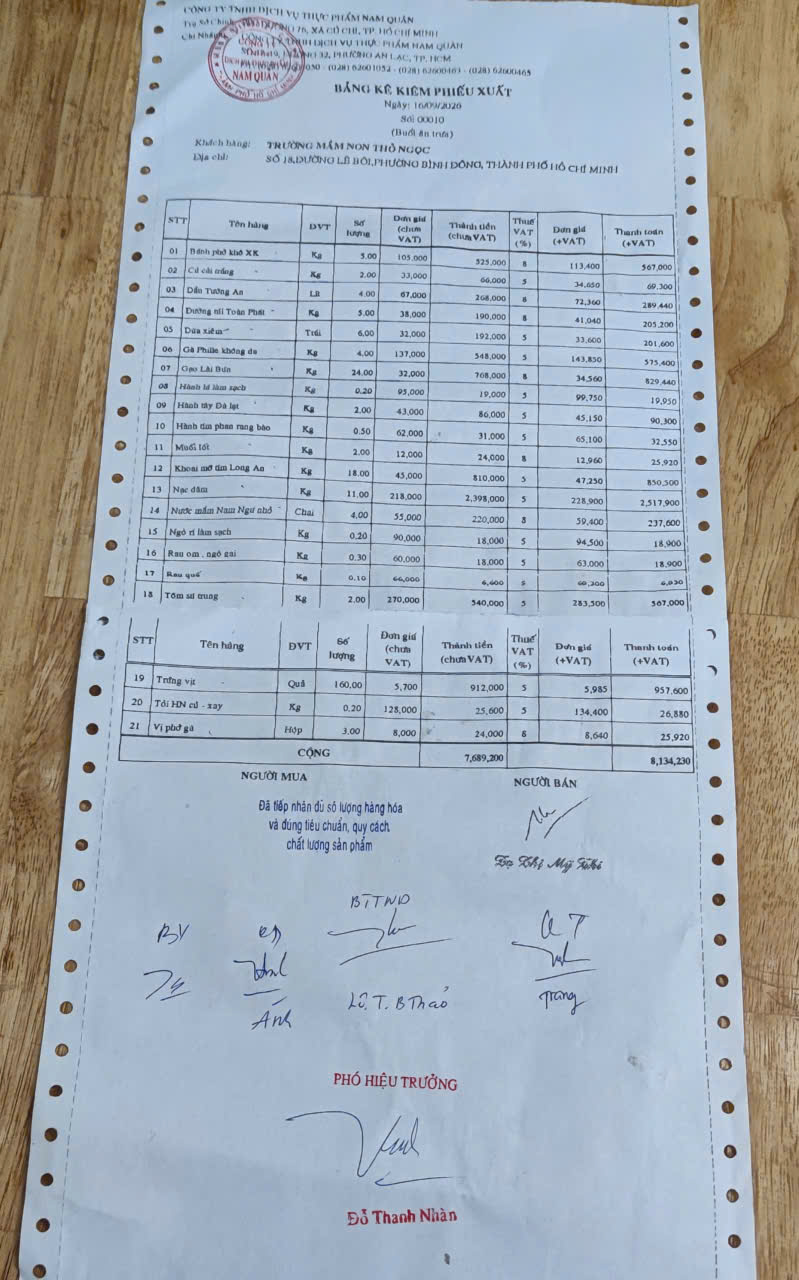 CÔNG TY TNHH DỊCH VỤ THỰC PHẨM NAM QUÂN
XÃ CỦ CHI, TP. HỒ CHÍ MINH
CÔNG TY TNHH DỊCH VỤ THỰC PHẨM NAM QUÂN
32, PHƯỜNG AN LẠC, TP. HCM
(028) 62601052 - (028) 62600463 - (028) 62600465
NAM QUÂN
BẢNG KÊ KIÊM PHIẾU XUẤT
Ngày: 16/09/2026
Số: 00010
(Buổi ăn trưa)
Khách hàng: TRƯỜNG MẦM NON THỎ NGỌC
Địa chỉ: SỐ 18,ĐƯỜNG LÊ BÔI,PHƯỜNG BÌNH ĐÔNG, THÀNH PHỐ HỒ CHÍ MINH
STT Tên hàng ĐVT Số lượng Đơn giá (chưa VAT) Thành tiền (chưa VAT) Thuế VAT (%) Đơn giá (+VAT) Thanh toán (+VAT)
01 Bánh phở khô XK Kg 5.00 105,000 525,000 8 113,400 567,000
02 Củ cải trắng Kg 2.00 33,000 66,000 5 34,650 69,300
03 Dầu Tường An Lít 4.00 67,000 268,000 8 72,360 289,440
04 Đường túi Toàn Phát Kg 5.00 38,000 190,000 8 41,040 205,200
05 Dừa xiêm Trái 6.00 32,000 192,000 5 33,600 201,600
06 Gà Phille không da Kg 4.00 137,000 548,000 5 143,850 575,400
07 Gạo Lài Bún Kg 24.00 32,000 768,000 8 34,560 829,440
08 Hành lá làm sạch Kg 0.20 95,000 19,000 5 99,750 19,950
09 Hành tây Đà lạt Kg 2.00 43,000 86,000 5 45,150 90,300
10 Hành tím phan rang bào Kg 0.50 62,000 31,000 5 65,100 32,550
11 Muối Iốt Kg 2.00 12,000 24,000 8 12,960 25,920
12 Khoai mỡ tím Long An Kg 18.00 45,000 810,000 5 47,250 850,500
13 Nạc dăm Kg 11.00 218,000 2,398,000 5 228,900 2,517,900
14 Nước mắm Nam Ngư nhỏ Chai 4.00 55,000 220,000 8 59,400 237,600
15 Ngò rí làm sạch Kg 0.20 90,000 18,000 5 94,500 18,900
16 Rau om , ngò gai Kg 0.30 60,000 18,000 5 63,000 18,900
17 Rau quế Kg 0.10 66,000 6,600 5 69,300 6,930
18 Tôm sú trung Kg 2.00 270,000 540,000 5 283,500 567,000
STT Tên hàng ĐVT Số lượng Đơn giá (chưa VAT) Thành tiền (chưa VAT) Thuế VAT (%) Đơn giá (+VAT) Thanh toán (+VAT)
19 Trứng vịt Quả 160.00 5,700 912,000 5 5,985 957,600
20 Tỏi HN củ - xay Kg 0.20 128,000 25,600 5 134,400 26,880
21 Vị phở gà Hộp 3.00 8,000 24,000 8 8,640 25,920
CỘNG 7,689,200 8,134,230
NGƯỜI MUA NGƯỜI BÁN
Đã tiếp nhận đủ số lượng hàng hóa
và đúng tiêu chuẩn, quy cách
chất lượng sản phẩm
BTTND
BV
QT
Ánh
Lê. T. B Thảo
Trang
PHÓ HIỆU TRƯỞNG
Đỗ Thanh Nhàn